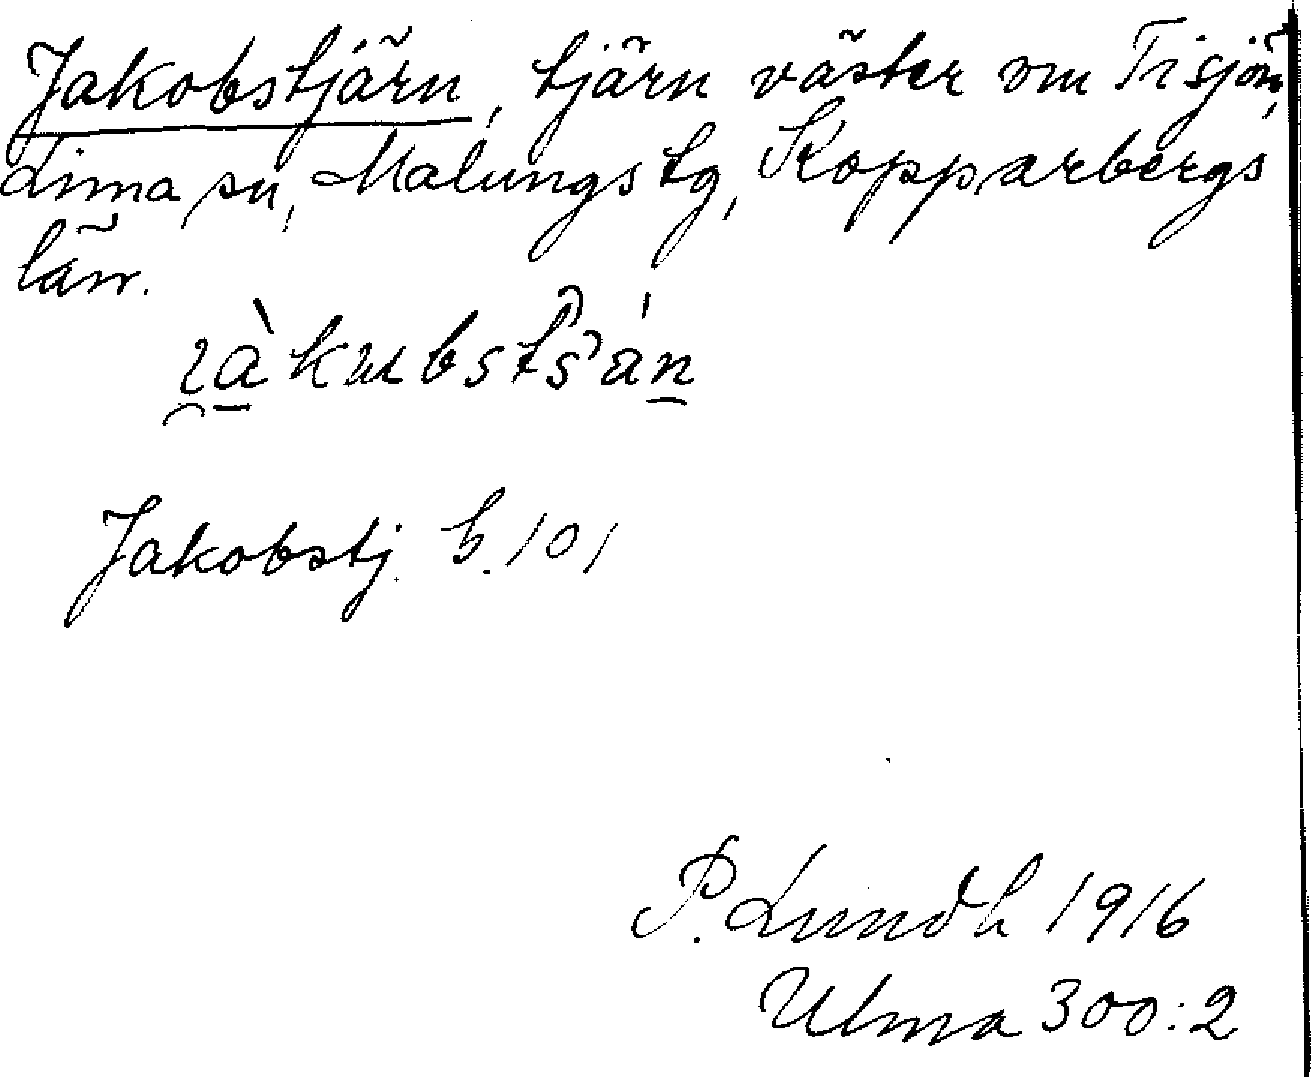 Jakobstjärn, tjärn väster om Tisjön,
Lima sn, Malungs tg, Kopparbergs
län.
Jakobstj. b. 101
P. Lundh 1916
Ulma 300:2